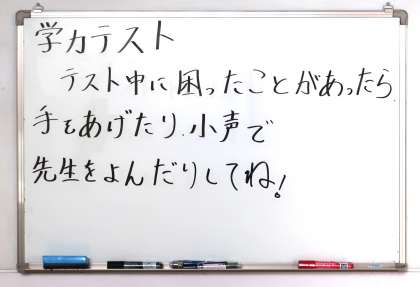 学力テスト
テスト中に困ったことがあったら
手をあげたり、小声で
先生をよんだりしてね!